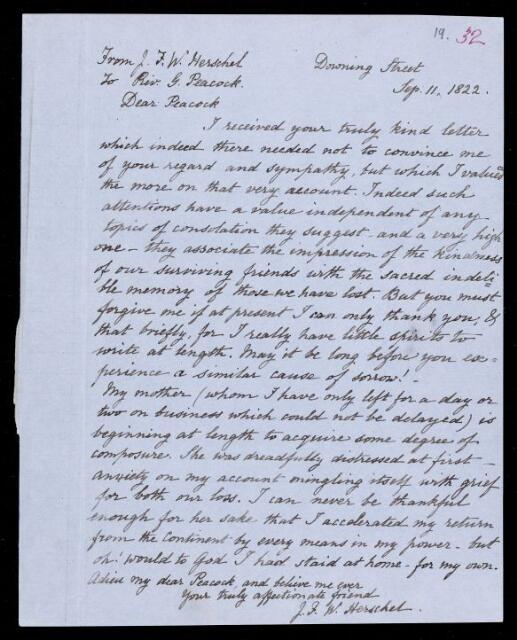 19. 32
From J. F. W. Herschel
To Rev. G. Peacock.
Downing Street
Sep. 11, 1822.
Dear Peacock
I received your truly kind letter
which indeed there needed not to convince me
of your regard and sympathy, but which I valued
the more on that very account. Indeed such
attentions have a value independent of any
topics of consolation they suggest - and a very high
one - they associate the impression of the kindness
of our surviving friends with the sacred indeli=
ble memory of those we have lost. But you must
forgive me if at present I can only thank you, &
that briefly, for I really have little spirits to
write at length. May it be long before you ex-
perience a similar cause of sorrow! -
My mother (whom I have only left for a day or
two on business which could not be delayed) is
beginning at length to acquire some degree of
composure. She was dreadfully distressed at first -
anxiety on my account mingling itself with grief
for both our loss. I can never be thankful
enough for her sake that I accelerated my return
from the Continent by every means in my power - but
oh! would to God I had staid at home - for my own.
Adieu my dear Peacock and believe me ever
your truly affectionate friend
J. F. W. Herschel.